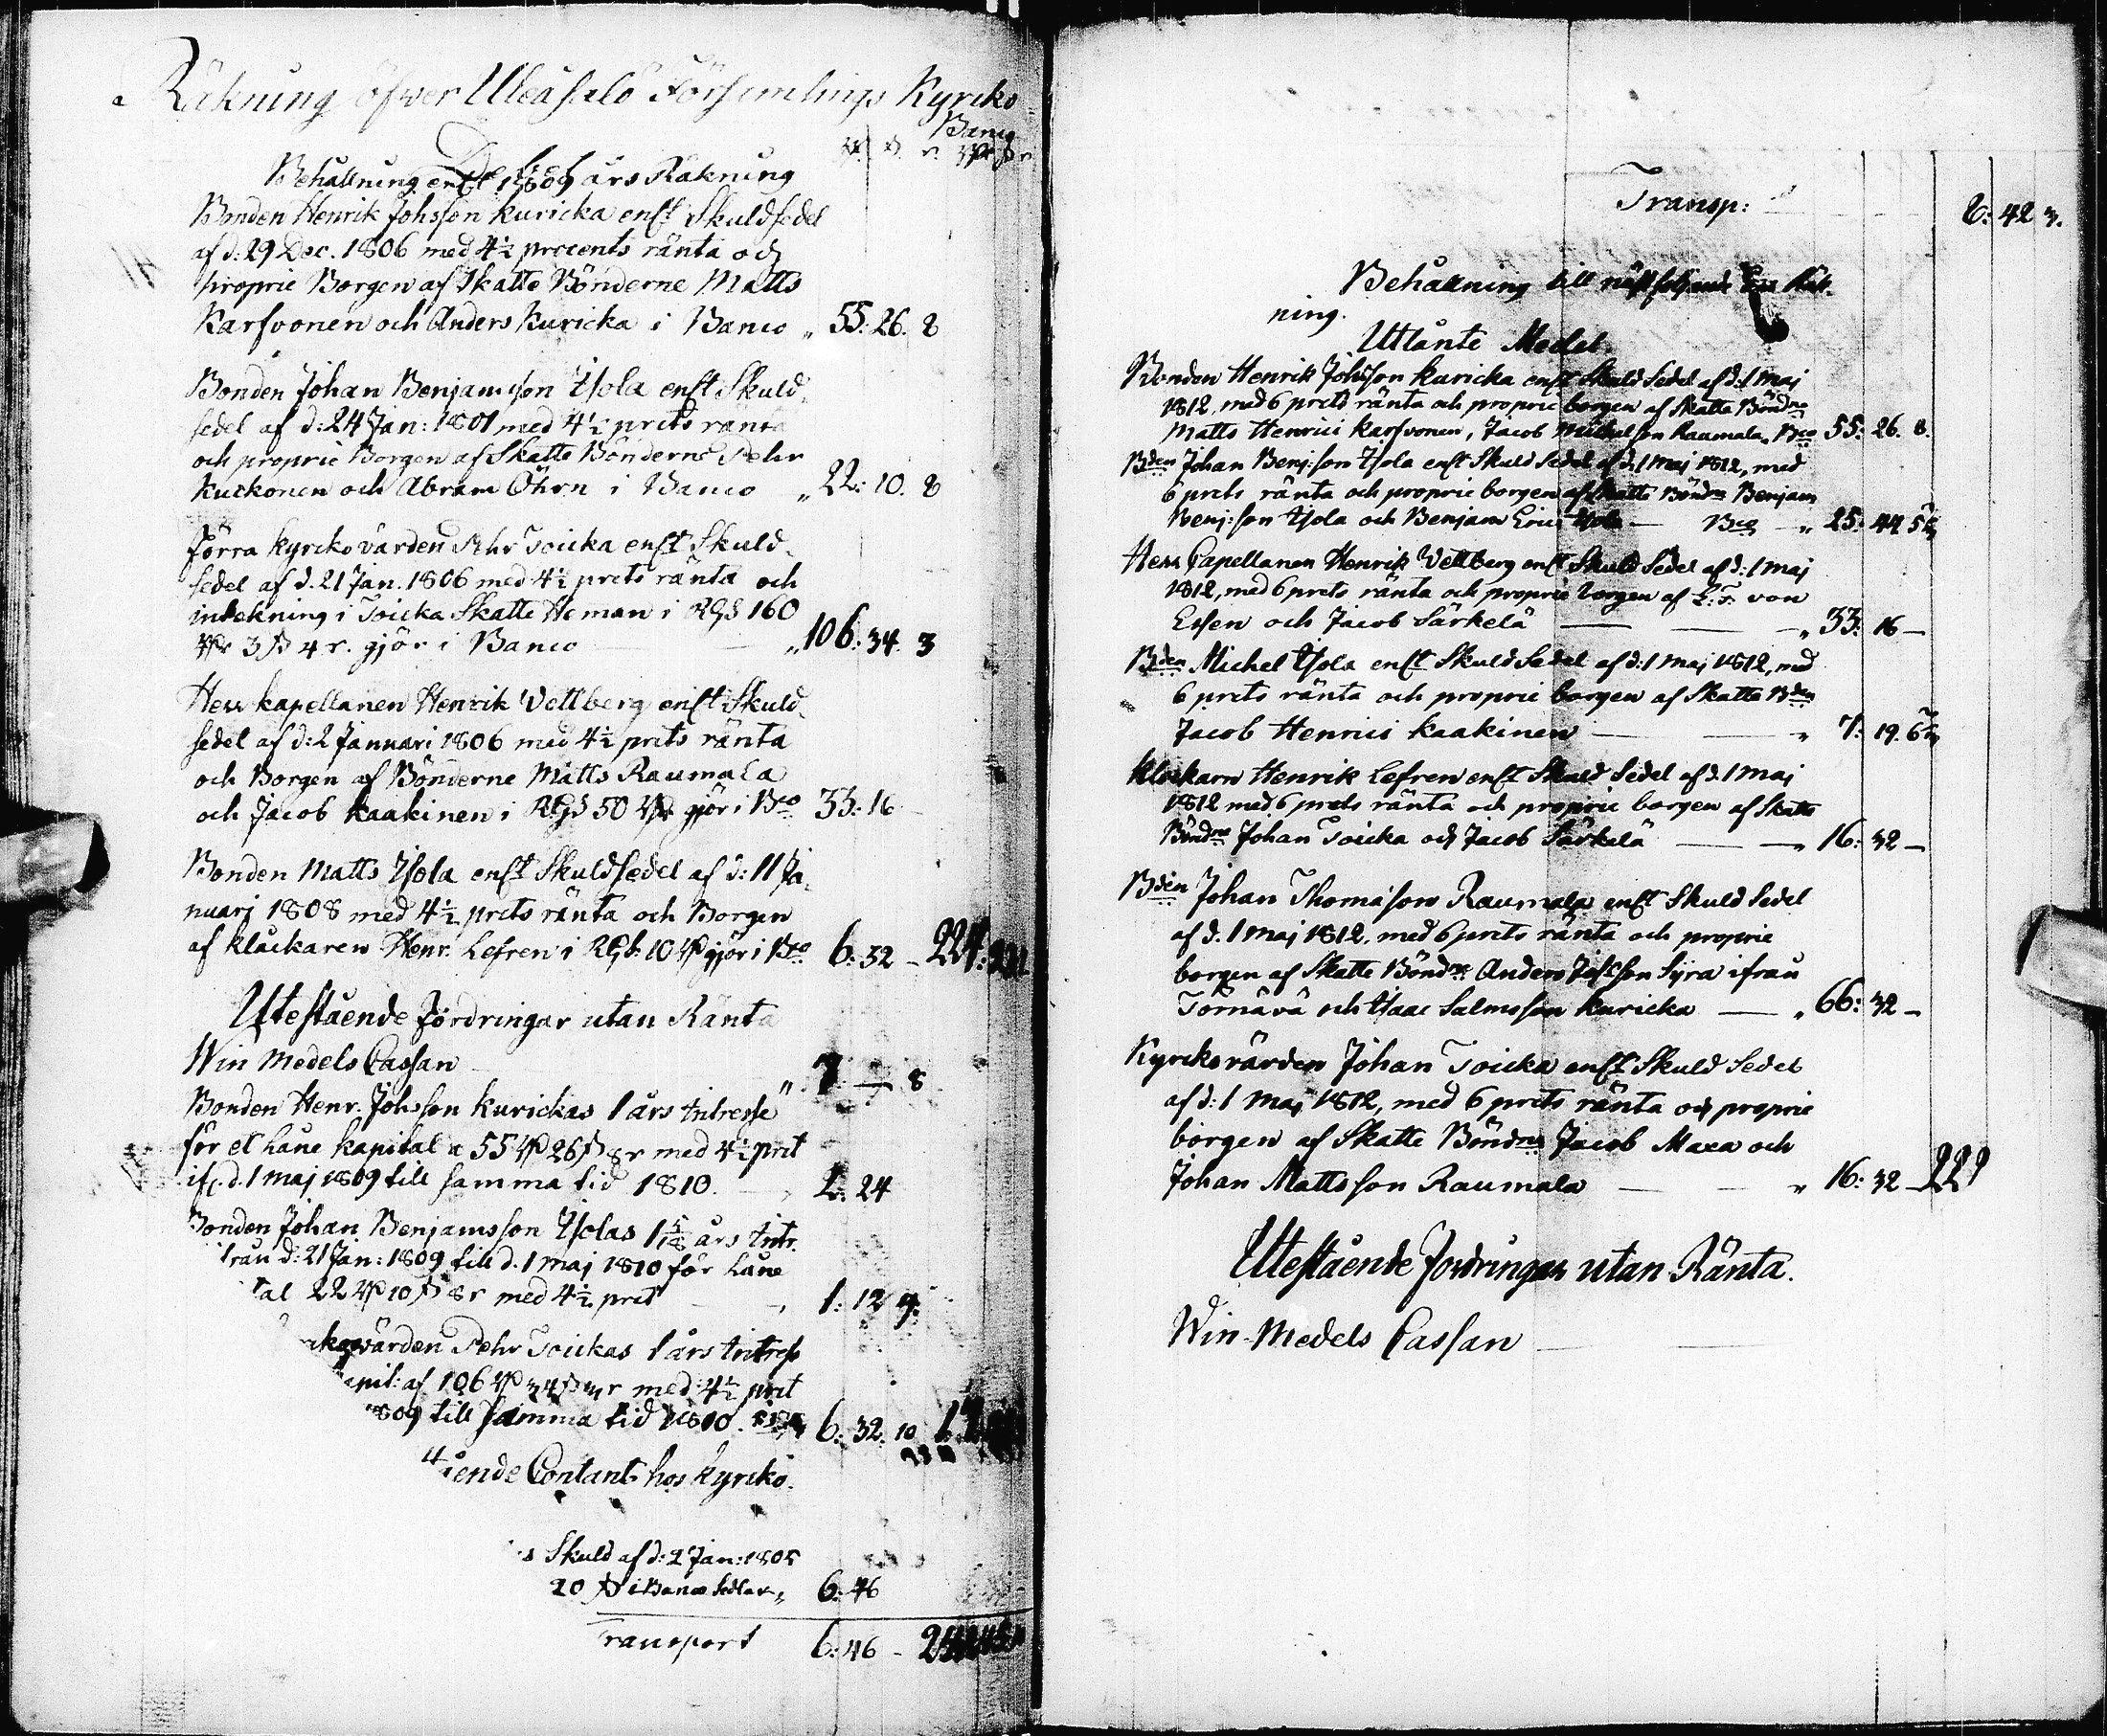 Räkning öfver Uleåsalo Församlings Kyrcko
Banco
Debet
Behållning enl:t 1809 års Räkning
Bonden Henrik Johsson Kuricka enl:t Skuldsedel
af d: 29 Dec. 1806 med 4½ procents ränta och
proprie Borgen af Skatte Bönderne Matts
Karfvonen och Anders Kuricka i Banco „ 55: 26. 8
Bonden Johan Benjamsson Ysola enl:t Skuld
sedel af d: 24 Jan: 1801 med 4½ prcts ränta
och proprie Borgen af Skatte Bönderne Pehr
Kuckonen och Abram Öhrn i Banco „ 22: 10. 8
Förra Kyrckovärden Pehr Toicka enl:t Skuld-
sedel af d. 21 Jan. 1806 med 4½ prcts ränta och
inteckning i Toicka Skatte Heman i RGS 160
3 4 r. gjör i Banco „ 106: 34. 3
Herr Kapellanen Henrik Vettberg enl:t Skuld
sedel af d: 2 Januari 1806 med 4½ prcts ränta
och Borgen af Bönderne Matts Raumala
och Jacob Kaakinen i RGS 50 gjör i Bco 33: 16
Bonden Matts Ysola enl:t Skuldsedel af d: 11 Ja-
nuarj 1808 med 4½ prcts ränta och Borgen
af klåckaren Henr. Lefren i RGS. 10 gjör i Bco 6: 32 – 224:
Utestående Fordringar utan Ränta
Win Medels Cassan 7 — 8
Bonden Henr. Johsson Kurickas 1 års Intresse
för et Låne kapital a 55 26 8 r med 4½ prct
ifr. d. 1 Maj 1809 till samma tid 1810. 2: 24
Bonden Johan Benjamsson Ysolas 1 5/18 års Intr.
från d: 21 Jan: 1809 till d. 1 Maj 1810 för Låne
tal 22 10 8 r med 4½ prct 1: 12
värden Pehr Toickas 1 års Intress
Capit: af 106 34 r med 4½ prct
1809 till samma tid 1810. 6: 32. 10
ående Contant hos Kyrcko.
s Skuld af d: 2 Jan: 1805
20 i Banco Sedlar „ 6: 46
Transport 6: 46 –
Transp: 6: 42 3.
Behållning till nästföljande Års Räk-
ning.
Utlånte Medel.
Bonden Henrik Johsson Kuricka enl:t Skuld Sedel af d: 1 Maj
1812, med 6 prcts ränta och proprie borgen af Skatte Böndne
Matts Henrici Karfvonen, Jacob Michelsson Raumala, Bco 55: 26. 8.
Bden Johan Benj:son Ysola enl:t Skuld Sedel af d: 1 Maj 1812, med
6 prcts ränta och proprie borgen af Skatte Böndne Benjam
Benj:son Ysola och Benjam Erici Ysola — Bco — „ 25: 44 5
Herr Capellanen Henrik Vettberg enl:t Skuld Sedel af d: 1 Maj
1812, med 6 prcts ränta och proprie borgen af E: F: von
Essen och Jacob Särkelä — „ 33: 16 —
Bden Michel Ysola enl:t Skuld Sedel af d: 1 Maj 1812, med
6 prcts ränta och proprie borgen af Skatte Bden
Jacob Henrici Kaakinen — „ 7: 19. 6
Klockarn Henrik Lefren enl:t Skuld Sedel af d. 1 Maj
1812 med 6 prcts ränta och proprie borgen af Skatte
Böndne Johan Toicka och Jacob Särkelä — „ 16: 32 —
Bden Johan Thomasson Raumala enl:t Skuld Sedel
af d. 1 Maj 1812, med 6 prcts ränta och proprie
borgen af Skatte Böndne Anders Syra ifrån
Törnävä och Isaac Salmosson Kuricka — „ 66: 32 —
Kyrckovärden Johan Toicka enl:t Skuld Sedel
af d: 1 Maj 1812, med 6 prcts ränta och proprie
borgen af Skatte Böndne Jacob Maxa och
Johan Mattsson Raumala — „ 16: 32 — 222
Utestående Fordringar utan Ränta.
Win-Medels Cassan —